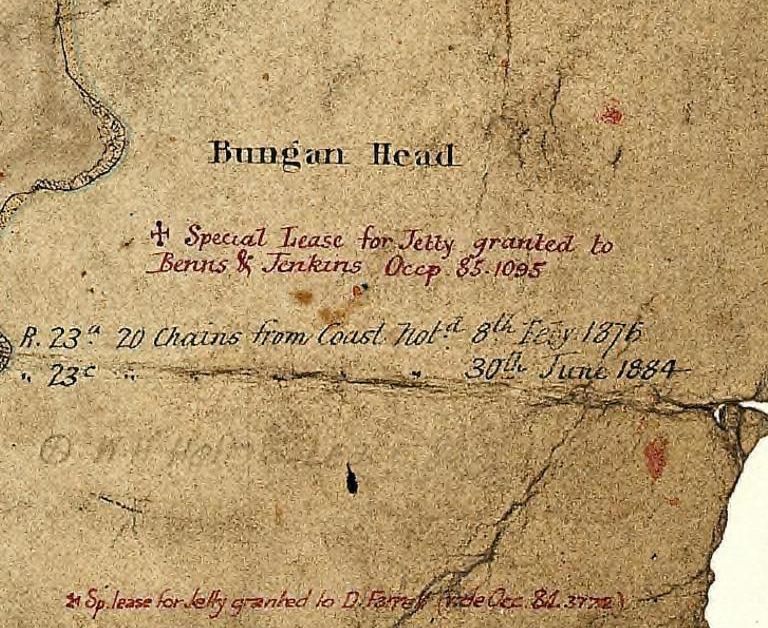 Bungan Head
✠ Special Lease for Jetty granted to
Benns & Jenkins Occp 85.1095
R. 23ᵃ 20 Chains from Coast Notᵈ 8ᵗʰ Feby 1876
„ 23ᶜ „ „ „ „ „ 30ᵗʰ June 1884
Sp. lease for Jetty granted to D. Farrell (vide Occ. 84.3772)